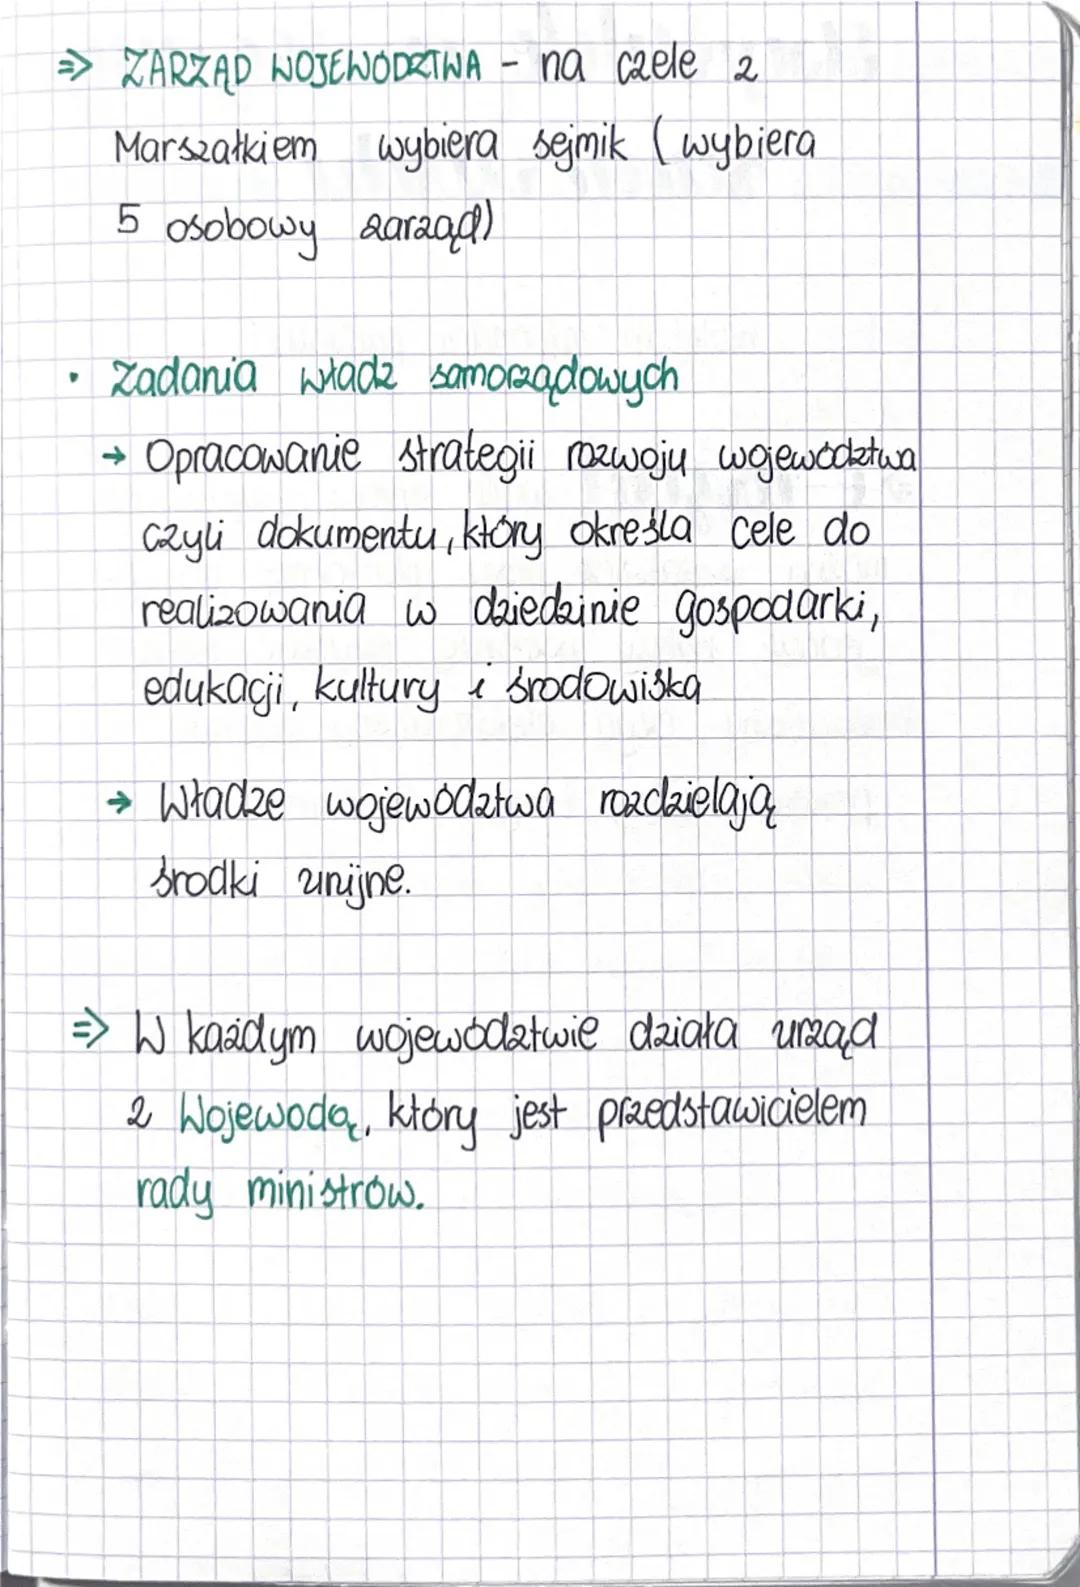 ⇒ ZARZĄD WOJEWÓDZTWA - na czele z
Marszałkiem wybiera sejmik (wybiera
5 osobowy zarząd)
• Zadania władz samorządowych
→ Opracowanie strategii rozwoju województwa
czyli dokumentu, który określa cele do
realizowania w dziedzinie gospodarki,
edukacji, kultury i środowiska
→ Władze województwa rozdzielają
środki unijne.
⇒ W każdym województwie działa urząd
z Wojewodą, który jest przedstawicielem
rady ministrów.